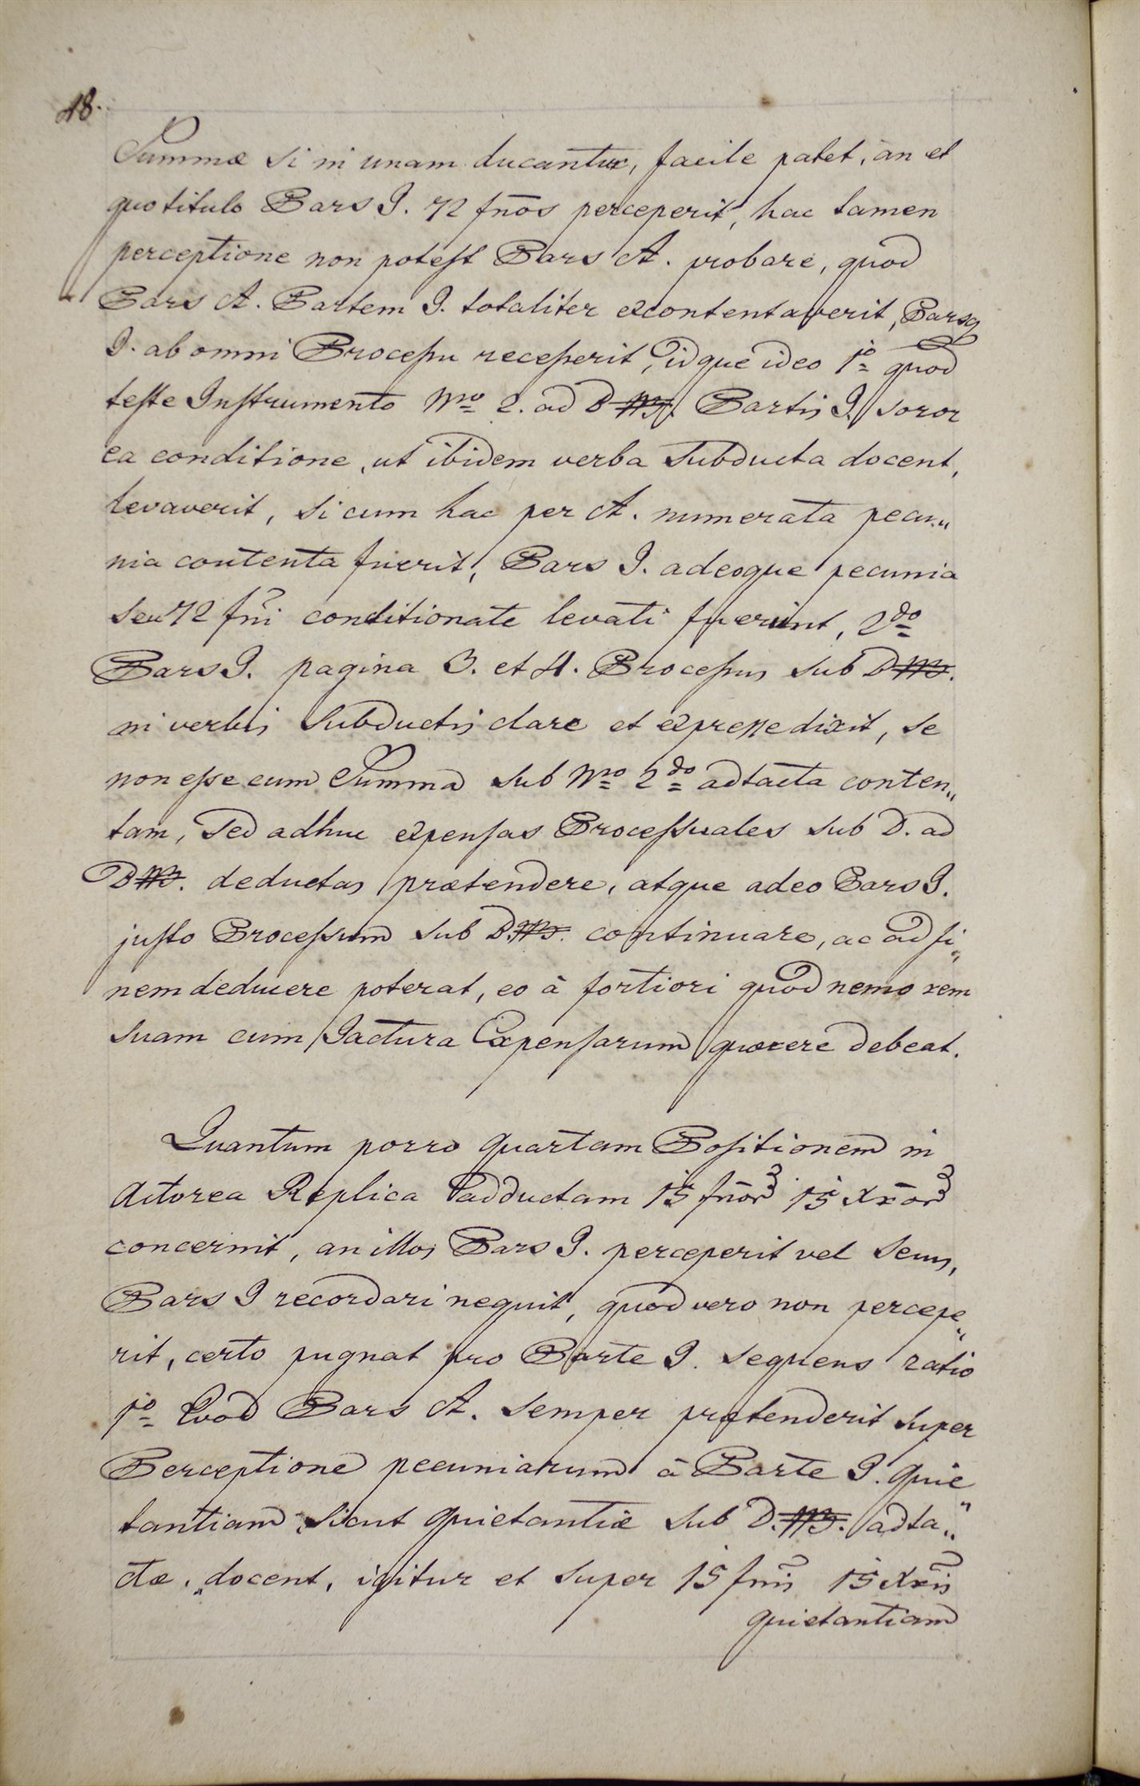 48.
Summæ si in unam ducantur, facile patet, an et
quo titulo Pars I. 72 fnos perceperit, hac tamen
perceptione non potest Pars A. probare, quod
Pars A. Partem I. totaliter excontentaverit, Parsq
I. ab omni Processu recesserit, idque ideo 1o quod
teste Instrumento Nro 2. ad D Partis I. soror
ea conditione, ut ibidem verba subducta docent,
levaverit, si cum hac per A. numerata pecu„
nia contenta fuerit, Pars I. adeoque pecunia
seu 72 fni conditionate levati fuerint, 2do
Pars I. pagina 3. et 4. Processus sub D
in verbis subductis clare et expresse dixit, se
non esse cum Summa sub Nro 2do adtacta conten„
tam, sed adhuc expensas Processuales sub D. ad
D deductas prætendere, atque adeo Pars I.
justo Processum sub D continuare, ac ad fi„
nem deducere poterat, eo à fortiori quod nemo rem
suam cum Jactura Expensarum quærere debeat.
Quantum porro quartam Positionem in
Actorea Replica adductam 15 fnor 15 Xror
concernit, an illos Pars I. perceperit vel secus,
Pars I recordari nequit, quod vero non percepe„
rit, certo pugnat pro Parte I. sequens ratio
1o Quod Pars A. semper prætenderit super
Perceptione pecuniarum à Parte I. quie„
tantiam, sicut quietantiæ sub D. adta„
ctæ, docent, igitur et super 15 fnis 15 Xris
quietantiam